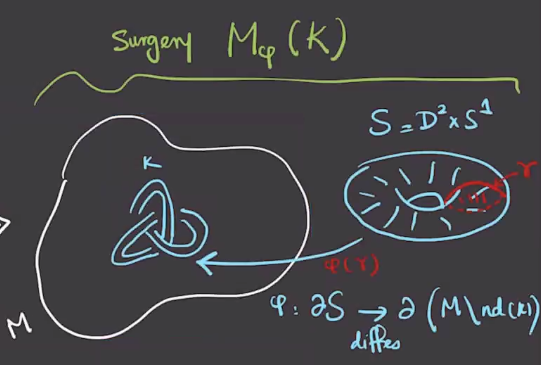 Surgery Mφ(K)
S = D² × S¹
K
γ
φ(γ)
φ: ∂S → ∂(M\nd(K))
diffeo
M